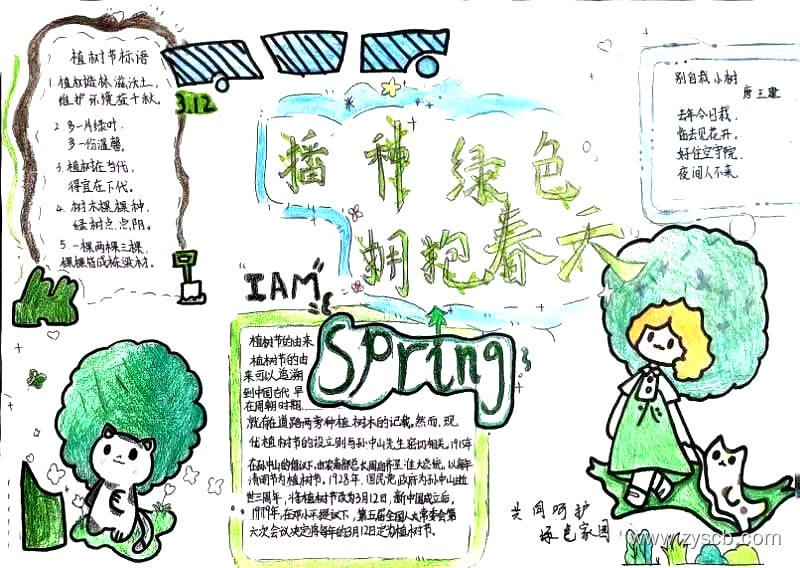 植树节标语
1. 植树造林滋沃土,
维护环境在千秋。
2. 多一片绿叶,
多一份温馨。
3. 植树在当代,
得宜在下代。
4. 树木棵棵种,
绿树点点阴。
5. 一棵两棵三棵,
棵棵皆成栋梁材。
3.12
播种绿色
拥抱春天
别自栽小树
唐 王建
去年今日栽,
临去见花开。
好住空宇院,
夜间人不来。
"IAM"
Spring
植树节的由来
植树节的由
来可以追溯
到中国古代 早
在周朝时期...
就存在道路两旁种植树木的记载。然而,现
代植树节的设立则与孙中山先生密切相关。1915年
在孙中山的倡议下,由农商部总长周自齐呈准大总统,以每年
清明节为植树节。1928年,国民党政府为孙中山逝
世三周年,将植树节改为3月12日,新中国成立后,
1979年,在邓小平提议下,第五届全国人大常委会第
六次会议决定将每年的3月12日定为植树节。
共同呵护
绿色家园
www.zyscb.com